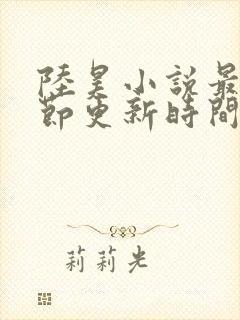 陸昊小說最
節更新時間
莉莉光